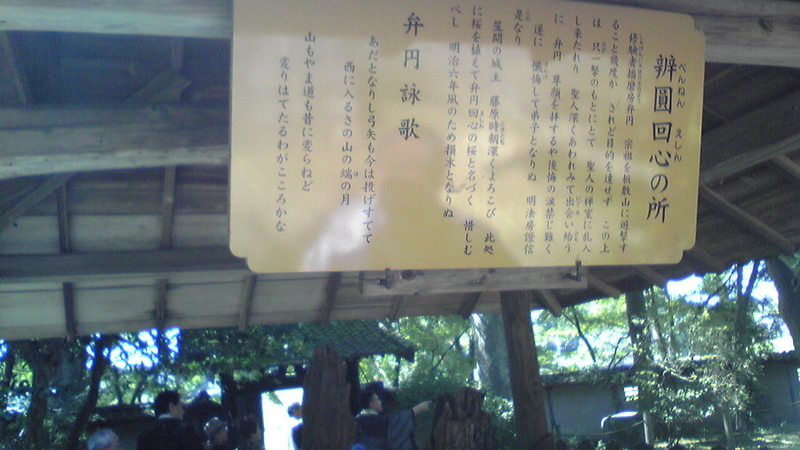 辨圓回心の所
べんねん えしん
修験者播磨房弁円 宗祖を板敷山に邀撃す
ること幾度か されど目的を達せず この上
は 只一撃のもとにとて 聖人の禅室に乱入
し来たれり 聖人深くあわれみて出会い給う
に 弁円 尊顔を拝するや後悔の涙禁じ難く
遂に 懺悔して弟子となりぬ 明法房證信
是なり
笠間の城主 藤原時朝深くよろこび 此処
に桜を植えて弁円回心の桜と名づく 惜しむ
べし 明治六年風のため損木となりぬ
弁円詠歌
あだとなりし弓矢も今は投げすてて
西に入るさの山の端の月
山もやま道も昔に変らねど
変りはてたるわがこころかな